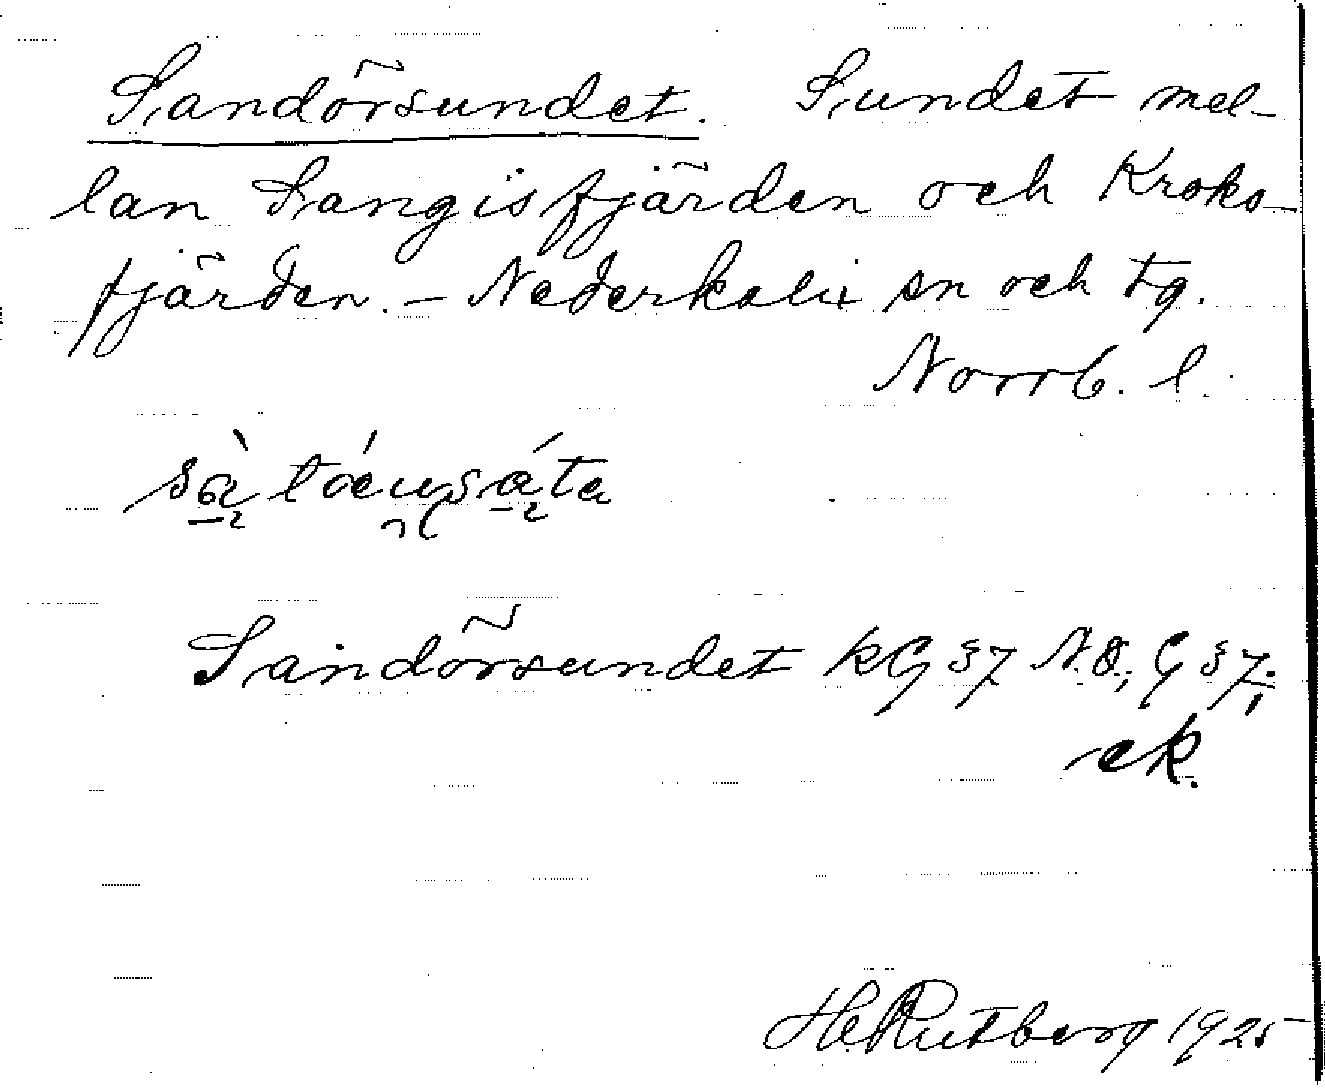 Sandörsundet. Sundet mel-
lan Sangisfjärden och Kroks-
fjärden. - Nederkalix sn och tg.
Norrb. l.
Sandörsundet KG 37 N.O., G 37.
ek.
H. Rutberg 1925